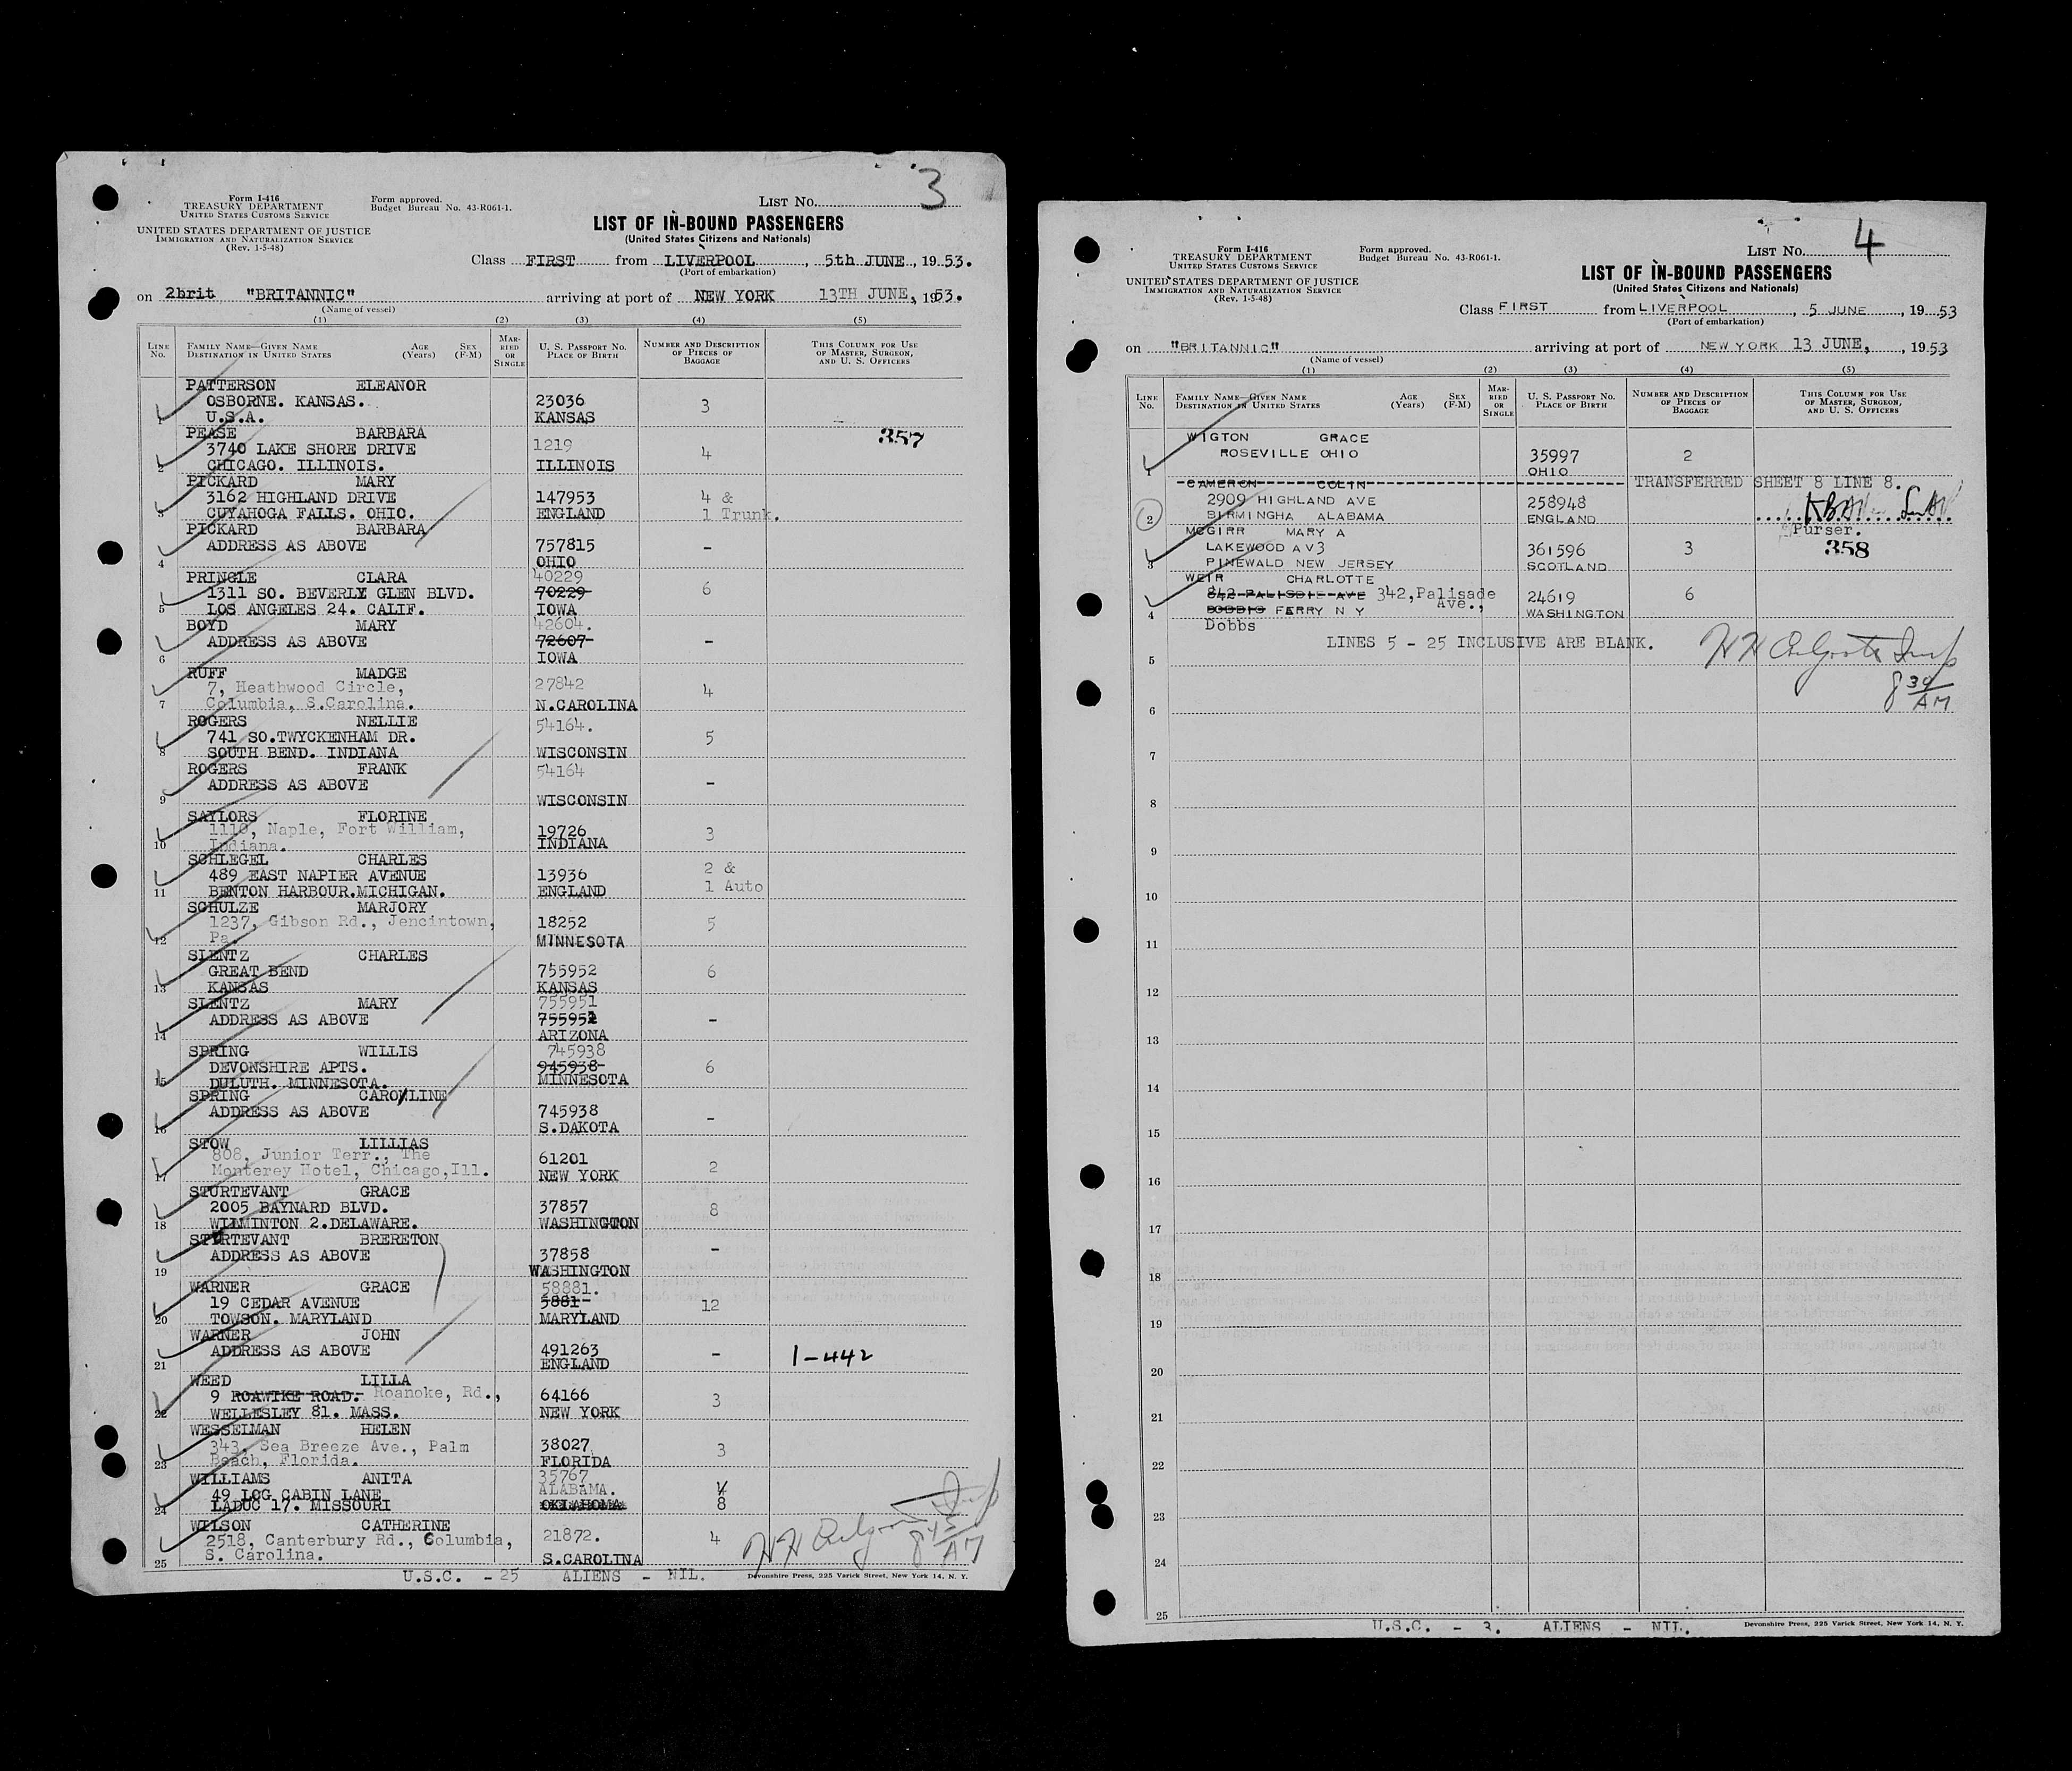 3
Form I-416
TREASURY DEPARTMENT
UNITED STATES CUSTOMS SERVICE
Form approved.
Budget Bureau No. 43-R061-1.
LIST No.
UNITED STATES DEPARTMENT OF JUSTICE
IMMIGRATION AND NATURALIZATION SERVICE
(Rev. 1-5-48)
LIST OF IN-BOUND PASSENGERS
(United States Citizens and Nationals)
Class FIRST from LIVERPOOL, 5th JUNE, 1953.
(Port of embarkation)
on 2brit "BRITANNIC" arriving at port of NEW YORK 13TH JUNE, 1953.
(Name of vessel)
(1) (2) (3) (4) (5)
LINE No. FAMILY NAME—GIVEN NAME DESTINATION IN UNITED STATES AGE (Years) SEX (F-M) MARRIED OR SINGLE U. S. PASSPORT NO. PLACE OF BIRTH NUMBER AND DESCRIPTION OF PIECES OF BAGGAGE THIS COLUMN FOR USE OF MASTER, SURGEON, AND U. S. OFFICERS
PATTERSON ELEANOR
OSBORNE. KANSAS. 23036 3
1 U.S.A. KANSAS
PEASE BARBARA 357
3740 LAKE SHORE DRIVE 1219 4
2 CHICAGO. ILLINOIS. ILLINOIS
PICKARD MARY
3162 HIGHLAND DRIVE 147953 4 &
3 CUYAHOGA FALLS. OHIO. ENGLAND 1 Trunk.
PICKARD BARBARA
ADDRESS AS ABOVE 757815 -
4 OHIO
PRINGLE CLARA 40229
1311 SO. BEVERLY GLEN BLVD. 70229 6
5 LOS ANGELES 24. CALIF. IOWA
BOYD MARY 42604.
ADDRESS AS ABOVE 72607 -
6 IOWA
RUFF MADGE
7, Heathwood Circle, 27842 4
7 Columbia, S.Carolina. N.CAROLINA
ROGERS NELLIE 54164.
741 SO.TWYCKENHAM DR. 5
8 SOUTH BEND. INDIANA WISCONSIN
ROGERS FRANK 54164
ADDRESS AS ABOVE -
9 WISCONSIN
SAYLORS FLORINE
1110, Naple, Fort William, 19726 3
10 Indiana. INDIANA
SCHLEGEL CHARLES 2 &
489 EAST NAPIER AVENUE 13936 1 Auto
11 BENTON HARBOUR.MICHIGAN. ENGLAND
SCHULZE MARJORY
1237, Gibson Rd., Jencintown, 18252 5
12 Pa. MINNESOTA
SLENTZ CHARLES
GREAT BEND 755952 6
13 KANSAS KANSAS
SLENTZ MARY 755951
ADDRESS AS ABOVE 755952 -
14 ARIZONA
SPRING WILLIS 745938
DEVONSHIRE APTS. 945938 6
15 DULUTH. MINNESOTA. MINNESOTA
SPRING CAROLINE
ADDRESS AS ABOVE 745938 -
16 S.DAKOTA
STOW LILLIAS
808, Junior Terr., The 61201 2
17 Monterey Hotel, Chicago,Ill. NEW YORK
STURTEVANT GRACE
2005 BAYNARD BLVD. 37857 8
18 WILMINTON 2.DELAWARE. WASHINGTON
STURTEVANT BRERETON
ADDRESS AS ABOVE 37858 -
19 WASHINGTON
WARNER GRACE 58881.
19 CEDAR AVENUE 5881 12
20 TOWSON. MARYLAND MARYLAND
WARNER JOHN
ADDRESS AS ABOVE 491263 - 1-442
21 ENGLAND
WEED LILLA
9 ROAWIKE ROAD. Roanoke, Rd., 64166 3
22 WELLESLEY 81. MASS. NEW YORK
WESSELMAN HELEN
343, Sea Breeze Ave., Palm 38027 3
23 Beach, Florida. FLORIDA
WILLIAMS ANITA 35767
49 LOG CABIN LANE ALABAMA.
24 LADUC 17. MISSOURI OKLAHOMA 8
WILSON CATHERINE
2518, Canterbury Rd., Columbia, 21872. 4
25 S. Carolina. S.CAROLINA
8 45 AM
U.S.C. - 25 ALIENS - NIL.
Devonshire Press, 225 Varick Street, New York 14, N. Y.
4
Form I-416
TREASURY DEPARTMENT
UNITED STATES CUSTOMS SERVICE
Form approved.
Budget Bureau No. 43-R061-1.
LIST No.
UNITED STATES DEPARTMENT OF JUSTICE
IMMIGRATION AND NATURALIZATION SERVICE
(Rev. 1-5-48)
LIST OF IN-BOUND PASSENGERS
(United States Citizens and Nationals)
Class FIRST from LIVERPOOL, 5 JUNE, 1953
(Port of embarkation)
on "BRITANNIC" arriving at port of NEW YORK 13 JUNE, 1953
(Name of vessel)
(1) (2) (3) (4) (5)
LINE No. FAMILY NAME—GIVEN NAME DESTINATION IN UNITED STATES AGE (Years) SEX (F-M) MARRIED OR SINGLE U. S. PASSPORT NO. PLACE OF BIRTH NUMBER AND DESCRIPTION OF PIECES OF BAGGAGE THIS COLUMN FOR USE OF MASTER, SURGEON, AND U. S. OFFICERS
WIGTON GRACE
ROSEVILLE OHIO 35997 2
1 OHIO
CAMERON COLIN TRANSFERRED SHEET 8 LINE 8.
2909 HIGHLAND AVE 258948
2 BIRMINGHA ALABAMA ENGLAND
MCGIRR MARY A Purser.
LAKEWOOD AV3 361596 3 358
3 PINEWALD NEW JERSEY SCOTLAND
WEIR CHARLOTTE
842 PALISDIE AVE 342,Palisade Ave., 24619 6
4 DOBBIG FERRY N Y WASHINGTON
Dobbs
LINES 5 - 25 INCLUSIVE ARE BLANK.
5
8 30 AM
6
7
8
9
10
11
12
13
14
15
16
17
18
19
20
21
22
23
24
25
U.S.C. - 3. ALIENS - NIL.
Devonshire Press, 225 Varick Street, New York 14, N. Y.